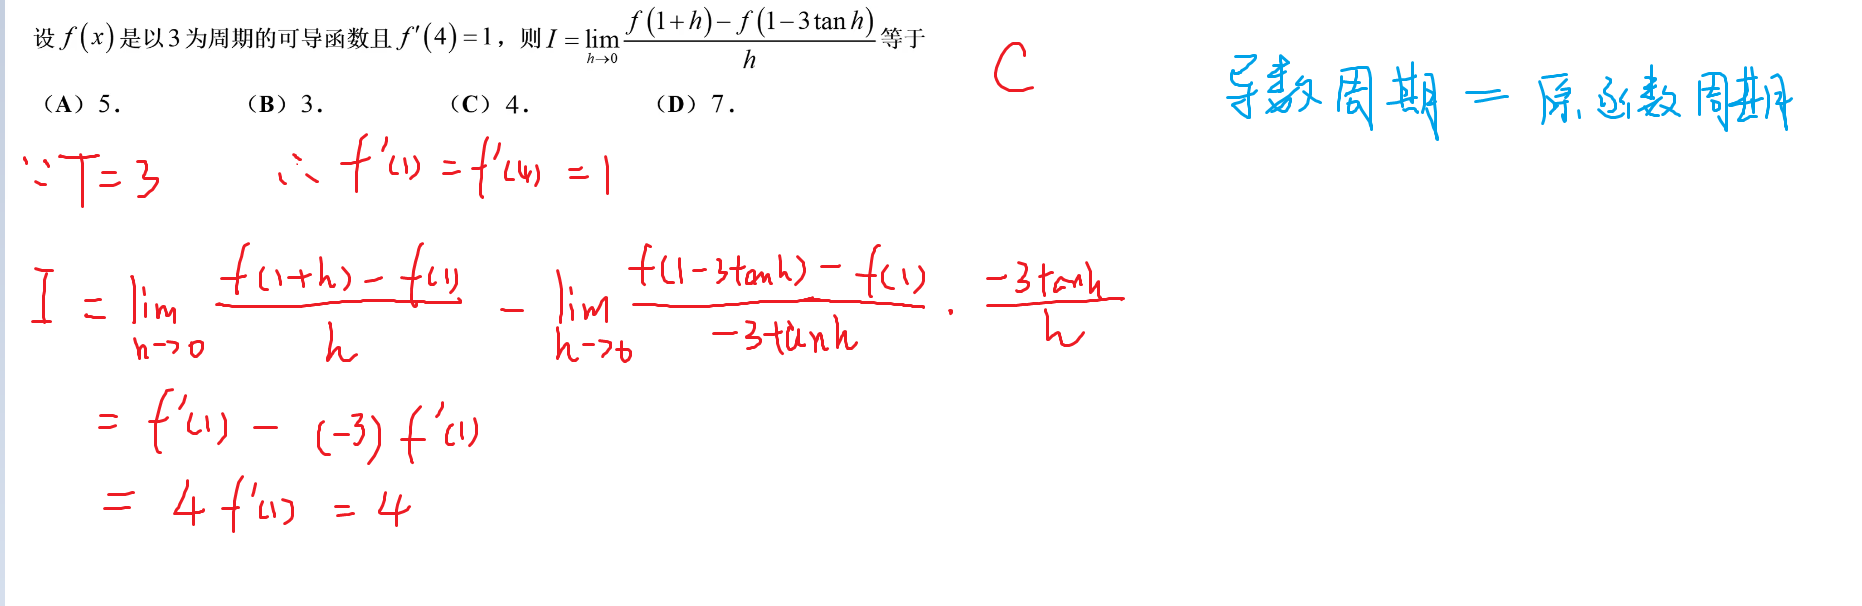 设 f(x) 是以 3 为周期的可导函数且 f′(4)=1，则 I = lim_{h→0} \frac{f(1+h)-f(1-3tan h)}{h} 等于
（A）5. （B）3. （C）4. （D）7.
C
导数周期 = 原函数周期
∵T=3 ∴ f′(1) = f′(4) = 1
I = lim_{h→0} \frac{f(1+h)-f(1)}{h} - lim_{h→0} \frac{f(1-3tanh)-f(1)}{-3tanh} · \frac{-3tanh}{h}
= f′(1) - (-3) f′(1)
= 4 f′(1) = 4